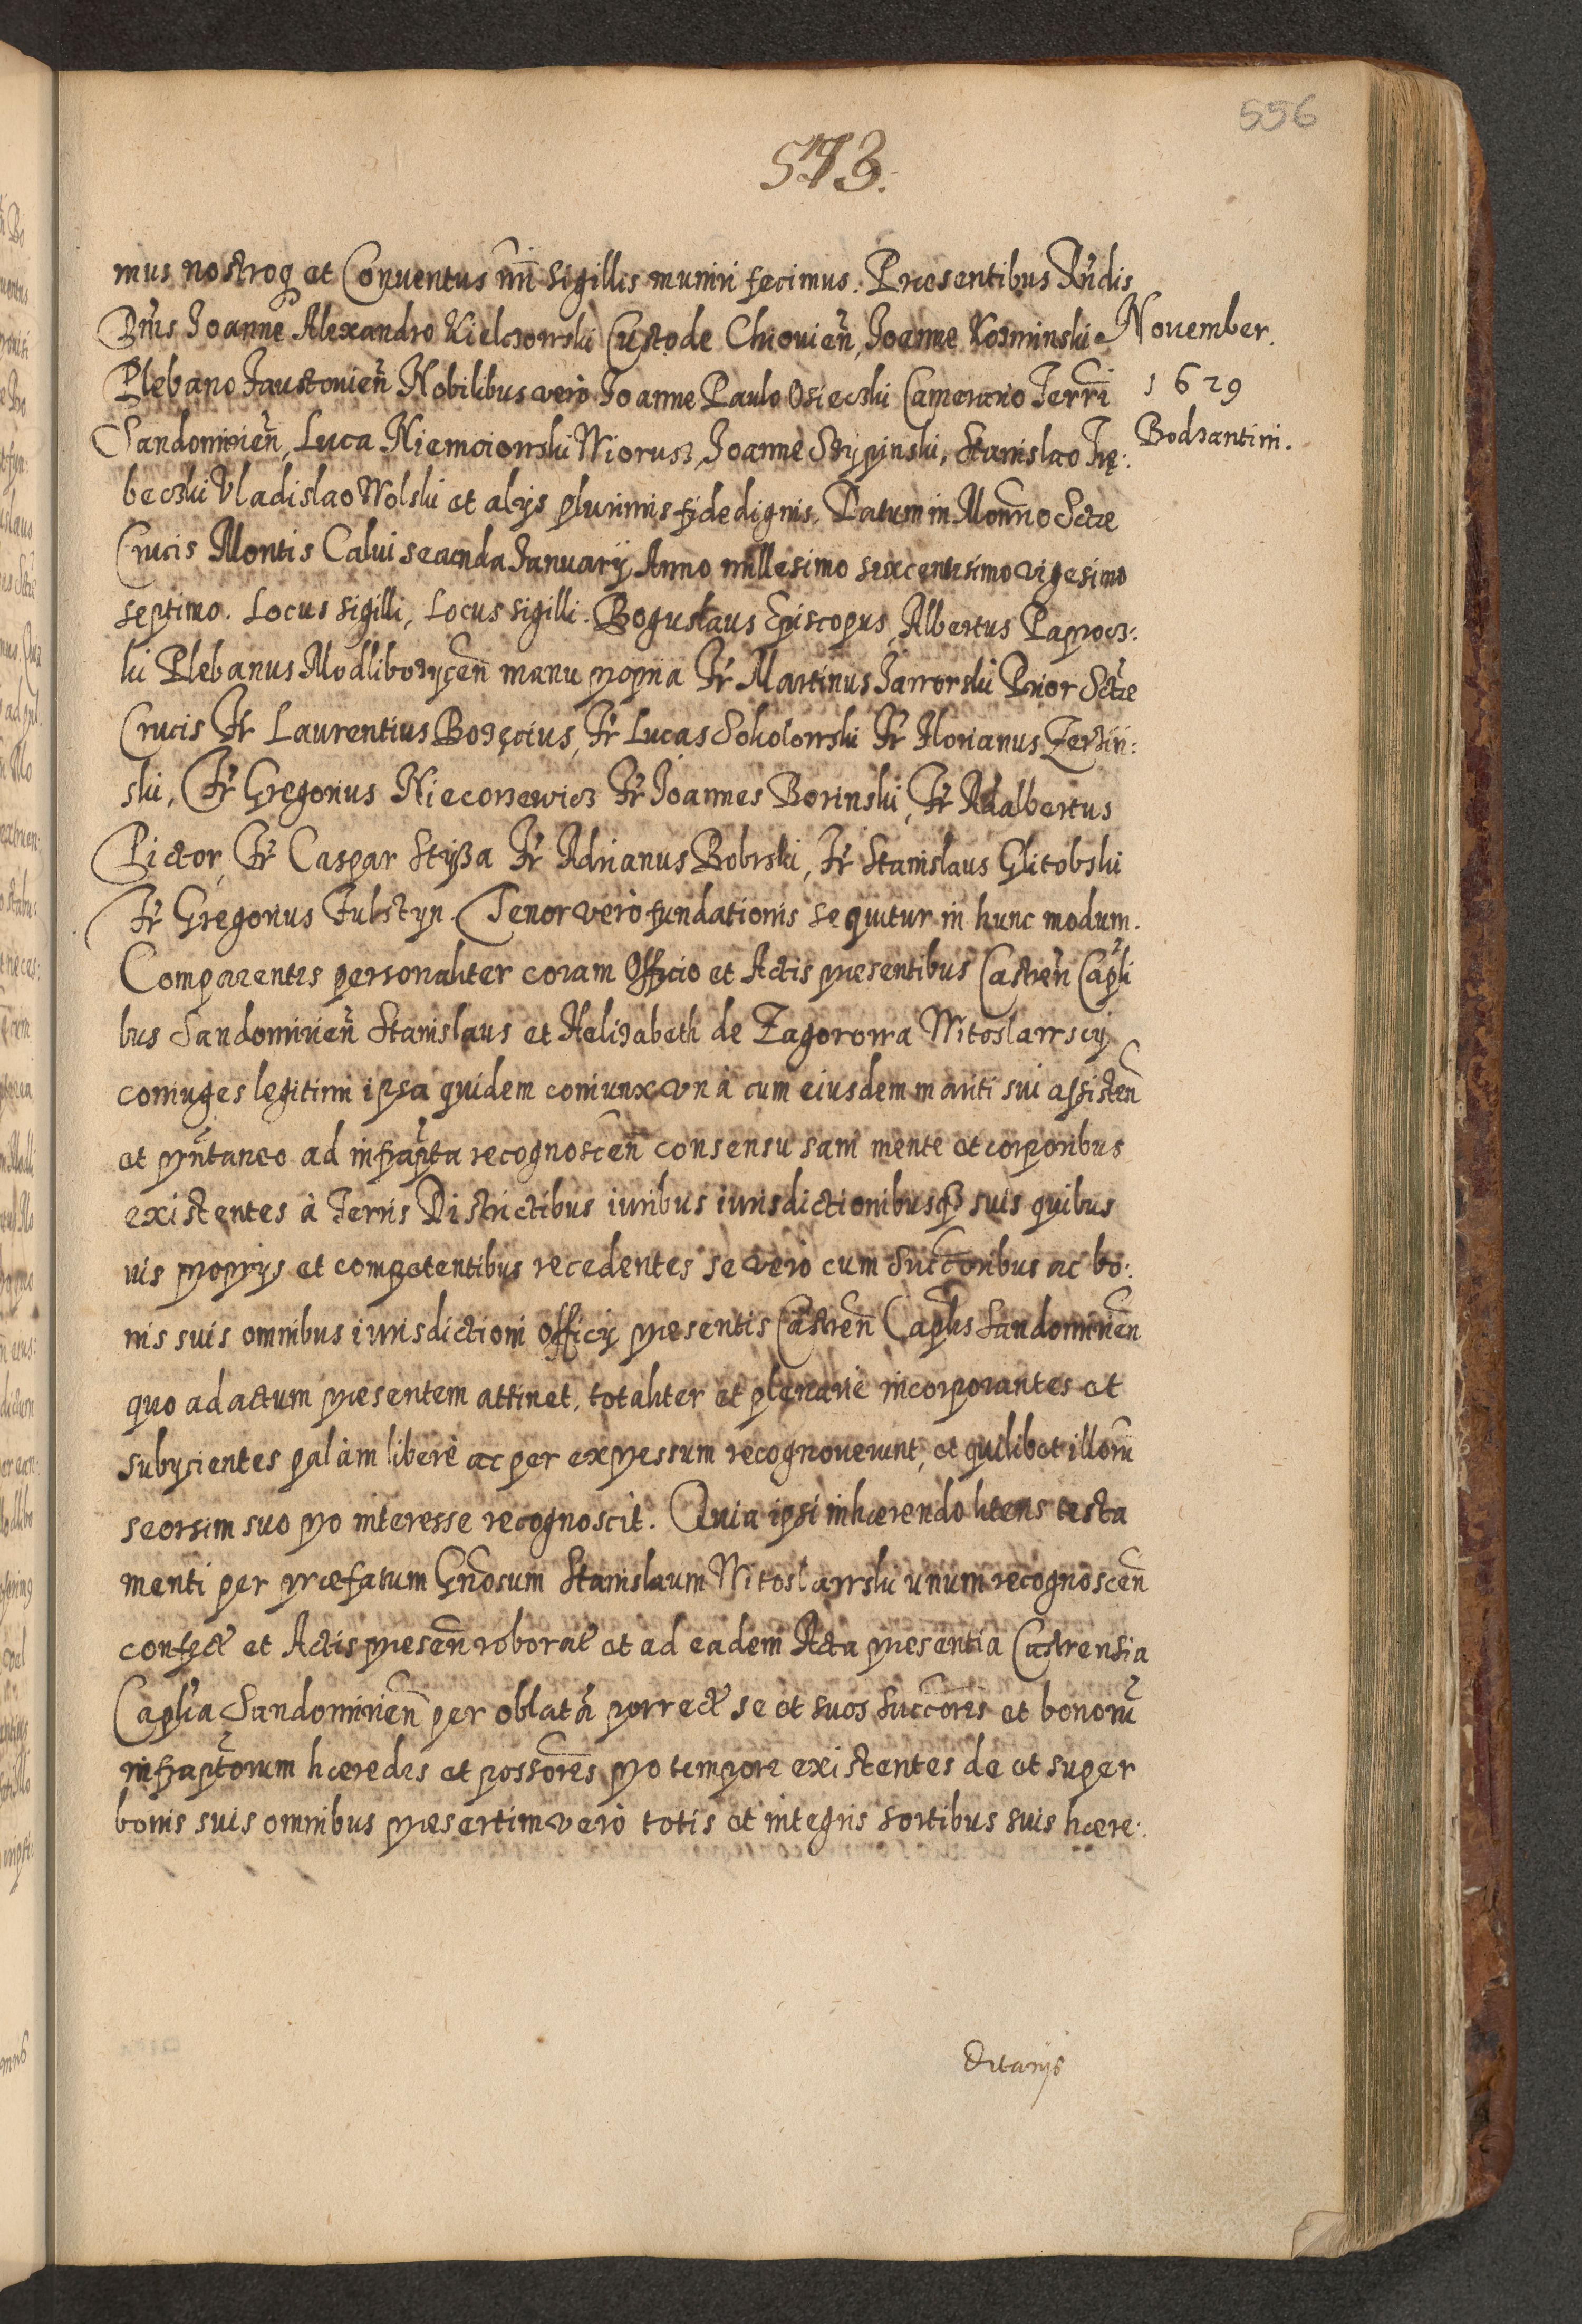 556
573.
mus nostroq et Conuentus nri sigillis muniri fecimus. Praesentibus Rńdis
Dńis Joanne Alexandro Kielczowski Custode Chiouień, Joanne Kozminski
November.
Plebano Faustouień Nobilibus vero Joanne Paulo Osieczki Camerario Terrae
1629
Sandomirień, Luca Niemoiowski Wiorusz, Joanne Strzypinski, Stanislao Trę:
Bodzantini.
beczki Vladislao Wolski et alijs plurimis fide dignis. Datum in Monrio Sctae
Crucis Montis Calui secunda Januarij Anno millesimo sexcentesimo vigesimo
septimo. Locus sigilli, Locus sigilli. Boguslaus Episcopus, Albertus Paprocz:
ki Plebanus Modliborzyceñ manu propria Fr Martinus Jaworski Prior Sctae
Crucis Fr Laurentius Bozęcius, Fr Lucas Sokolowski Fr Florianus Zerzin:
ski, Fr Gregorius Niecorzewicz Fr Joannes Borinski, Fr Adalbertus
Pictor, Fr Caspar Stysza Fr Adrianus Bobrski, Fr Stanislaus Glitobski
Fr Gregorius Fulstyn. Tenor verò fundationis sequitur in hunc modum.
Comparentes personaliter coram Officio et Actis praesentibus Castreń Capli
bus Sandomirień Stanislaus et Helizabeth de Zagorowa Witoslawscij
coniuges legitimi ipsa quidem coniunx unà cum eiusdem mariti sui assisteñ
et pñtaneo ad infrapta recognosceñ consensu sani mente et corporibus
existentes à Terris Districtibus iuribus iurisdictionibusq suis quibus
uis proprijs et competentibus recedentes se verò cum Succoribus ac bo:
nis suis omnibus iurisdictioni officij praesentis Castreñ Caplis Sandomirieñ
quo ad actum praesentem attinet, totaliter et plenariè incorporantes et
subijcientes palàm liberè ac per expressum recognoverunt, et quilibet illorũ
seorsim suo pro interesse recognoscit. Quia ipsi inhaerendo literis testa
menti per praefatum Gñosum Stanislaum Witoslawski unum recognosceñ
confect et Actis praesen roborat et ad eadem Acta praesentia Castrensia
Caplia Sandomirieñ per oblatã porrect se et suos Succores et bonorũ
infraptorum haeredes et possores pro tempore existentes de et super
bonis suis omnibus praesertim verò totis et integris sortibus suis haere:
ditarijs